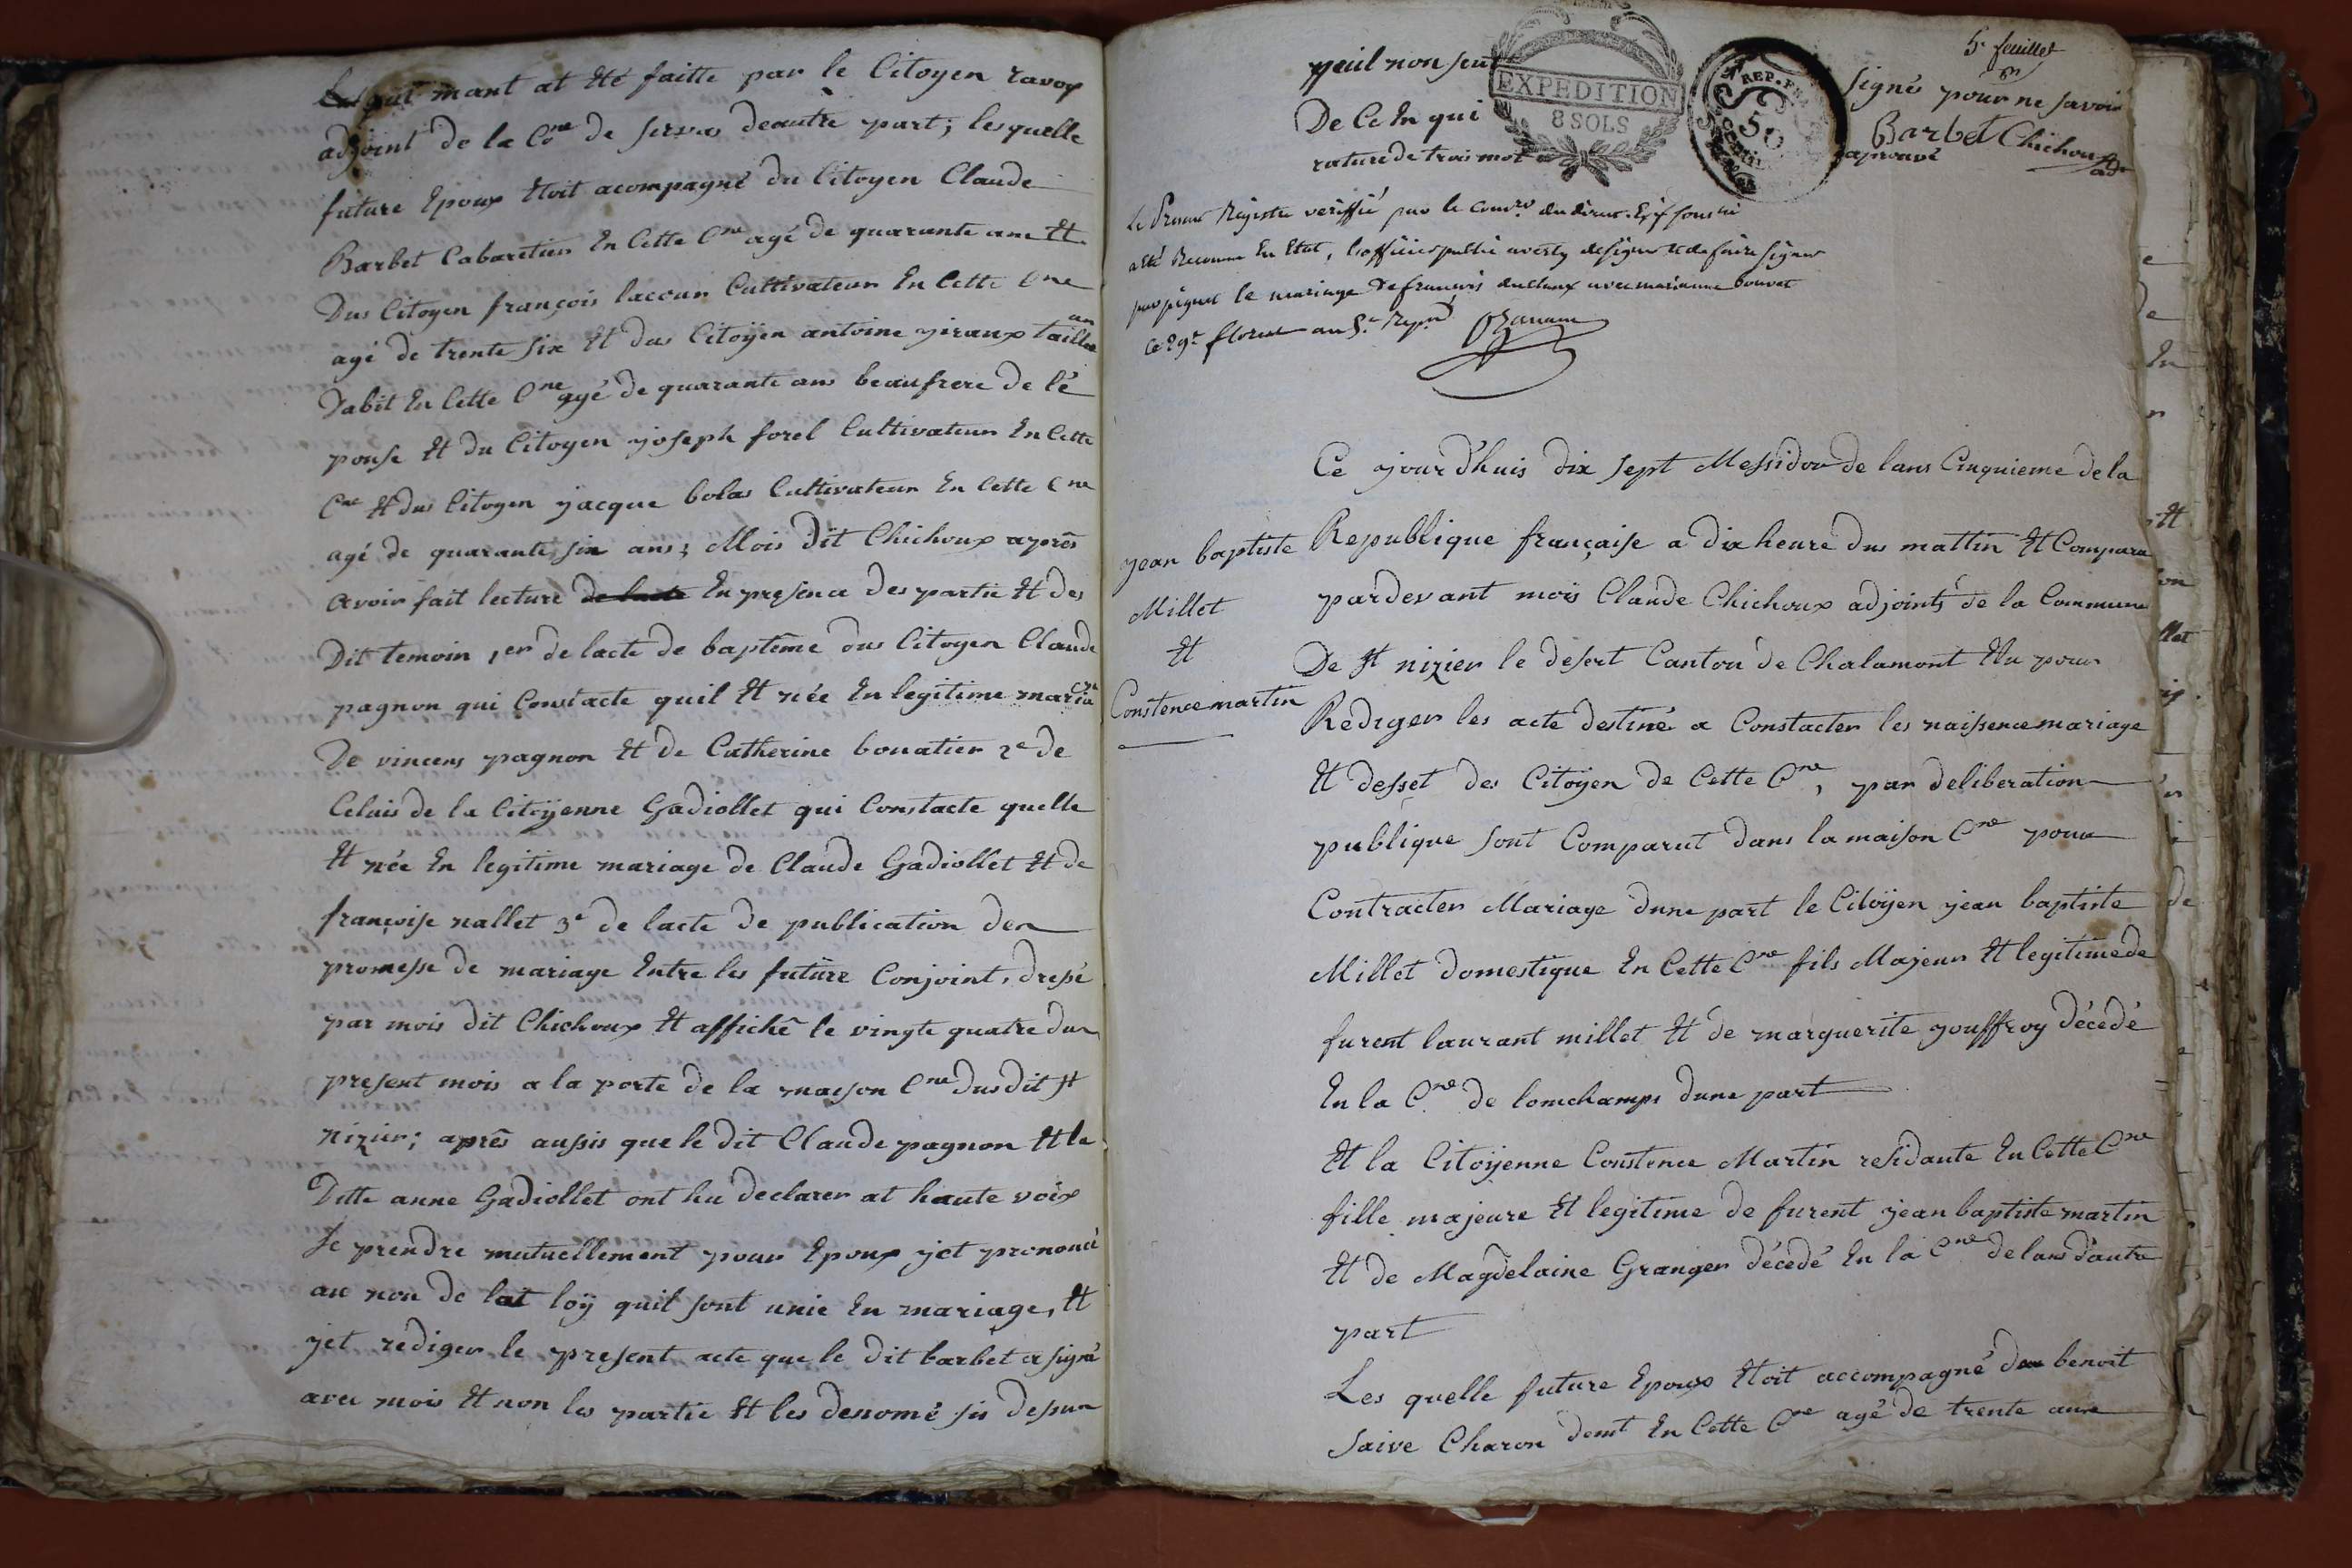 mant at Eté faitte par le Citoyen ravoy
adjoint de la Cne de servas deautre part; lesquelle
future Epoux Etoit acompagné du Citoyen Claude
Barbet Cabaretier En Cette Cne agé de quarante ans Et
Dus Citoyen françois lacour Cultivateur En Cette Cne
agé de trente six Et dus Citoÿen antoine yiraux tailleur
Dabit En Cette Cne agé de quarante ans beaufrere de lé
pouse Et du Citoyen yoseph forel Cultivateur En Cette
Cne Et dus Citoyen yacque bolas Cultivateur En Cette Cne
agé de quarante six ans; Mois Dit Chichoux après
avoir fait lecture de lacte En presence des partie Et des
Dit temoin 1er de lacte de baptême dus Citoyen Claude
pagnon qui Constacte quil Et née En legitime mariage
De vincens pagnon Et de Catherine bouatier 2e de
Celuis de la Citoÿenne Gadiollet qui Constacte quelle
Et née En legitime mariage de Claude Gadiollet Et de
françoise nallet 3e de lacte de publication der
promesse de mariage Entre les future Conjoint, dressé
par mois dit Chichoux Et affiché le vingte quatre dus
present mois a la porte de la maison Cne Dusdit St
nizier; après aussis que le dit Claude pagnon Et la
Ditte anne Gadiollet ont hu declarer at haute voix
Se prendre mutuellement pour Epoux yet prononcé
au non de lat loÿ quil sont unie En mariage, Et
yet rediger le present acte que le dit barbet a signé
avec mois Et non les partie Et les denomé sis dessur
5e feuillet
yeuil non seut signé pour ne savoir
De Ce En qui Barbet Chichoux adt
rature de trois mot aprouvé
EXPEDITION
8 SOLS
REP. FRA
50
Le Present Registre veriffié par le
a Eté Reconnu En Etat, lofficier public averty de signer Et de faire signer
par piquet le mariage de francois duclaux avec marianne bouvet
Ce 29e floreal an 5e
Ce yourdhuis dix sept Messidor de lans Cinquieme de la
Republique française a dix heure dus mattin Et Compara
pardevant mois Claude Chichoux adjoints de la Commune
De St nizier le desert Canton de Chalamont Elu pour
Rediger les acte destiné a Constacter les naissence mariage
Et desset des Citoÿen de Cette Cne, par deliberation
publique sont Comparut dans la maison Cne pour
Contracter Mariage dune part le Citoÿen yean baptiste
Millet domestique En Cette Cne fils Majeur Et legitime de
furent laurant millet Et de marguerite youffroy décedé
En la Cne de lonchamps dune part
Et la Citoÿenne Constence Martin residante En Cette Cne
fille majeure Et legitime de furent yean baptiste martin
Et de Magdelaine Granger décedé En la Cne de lans dautre
part
Les quelle future Epoux Etoit accompagné de benoit
Saive Charon demt En Cette Cne agé de trente ans
yean baptiste
Millet
Et
Constence martin